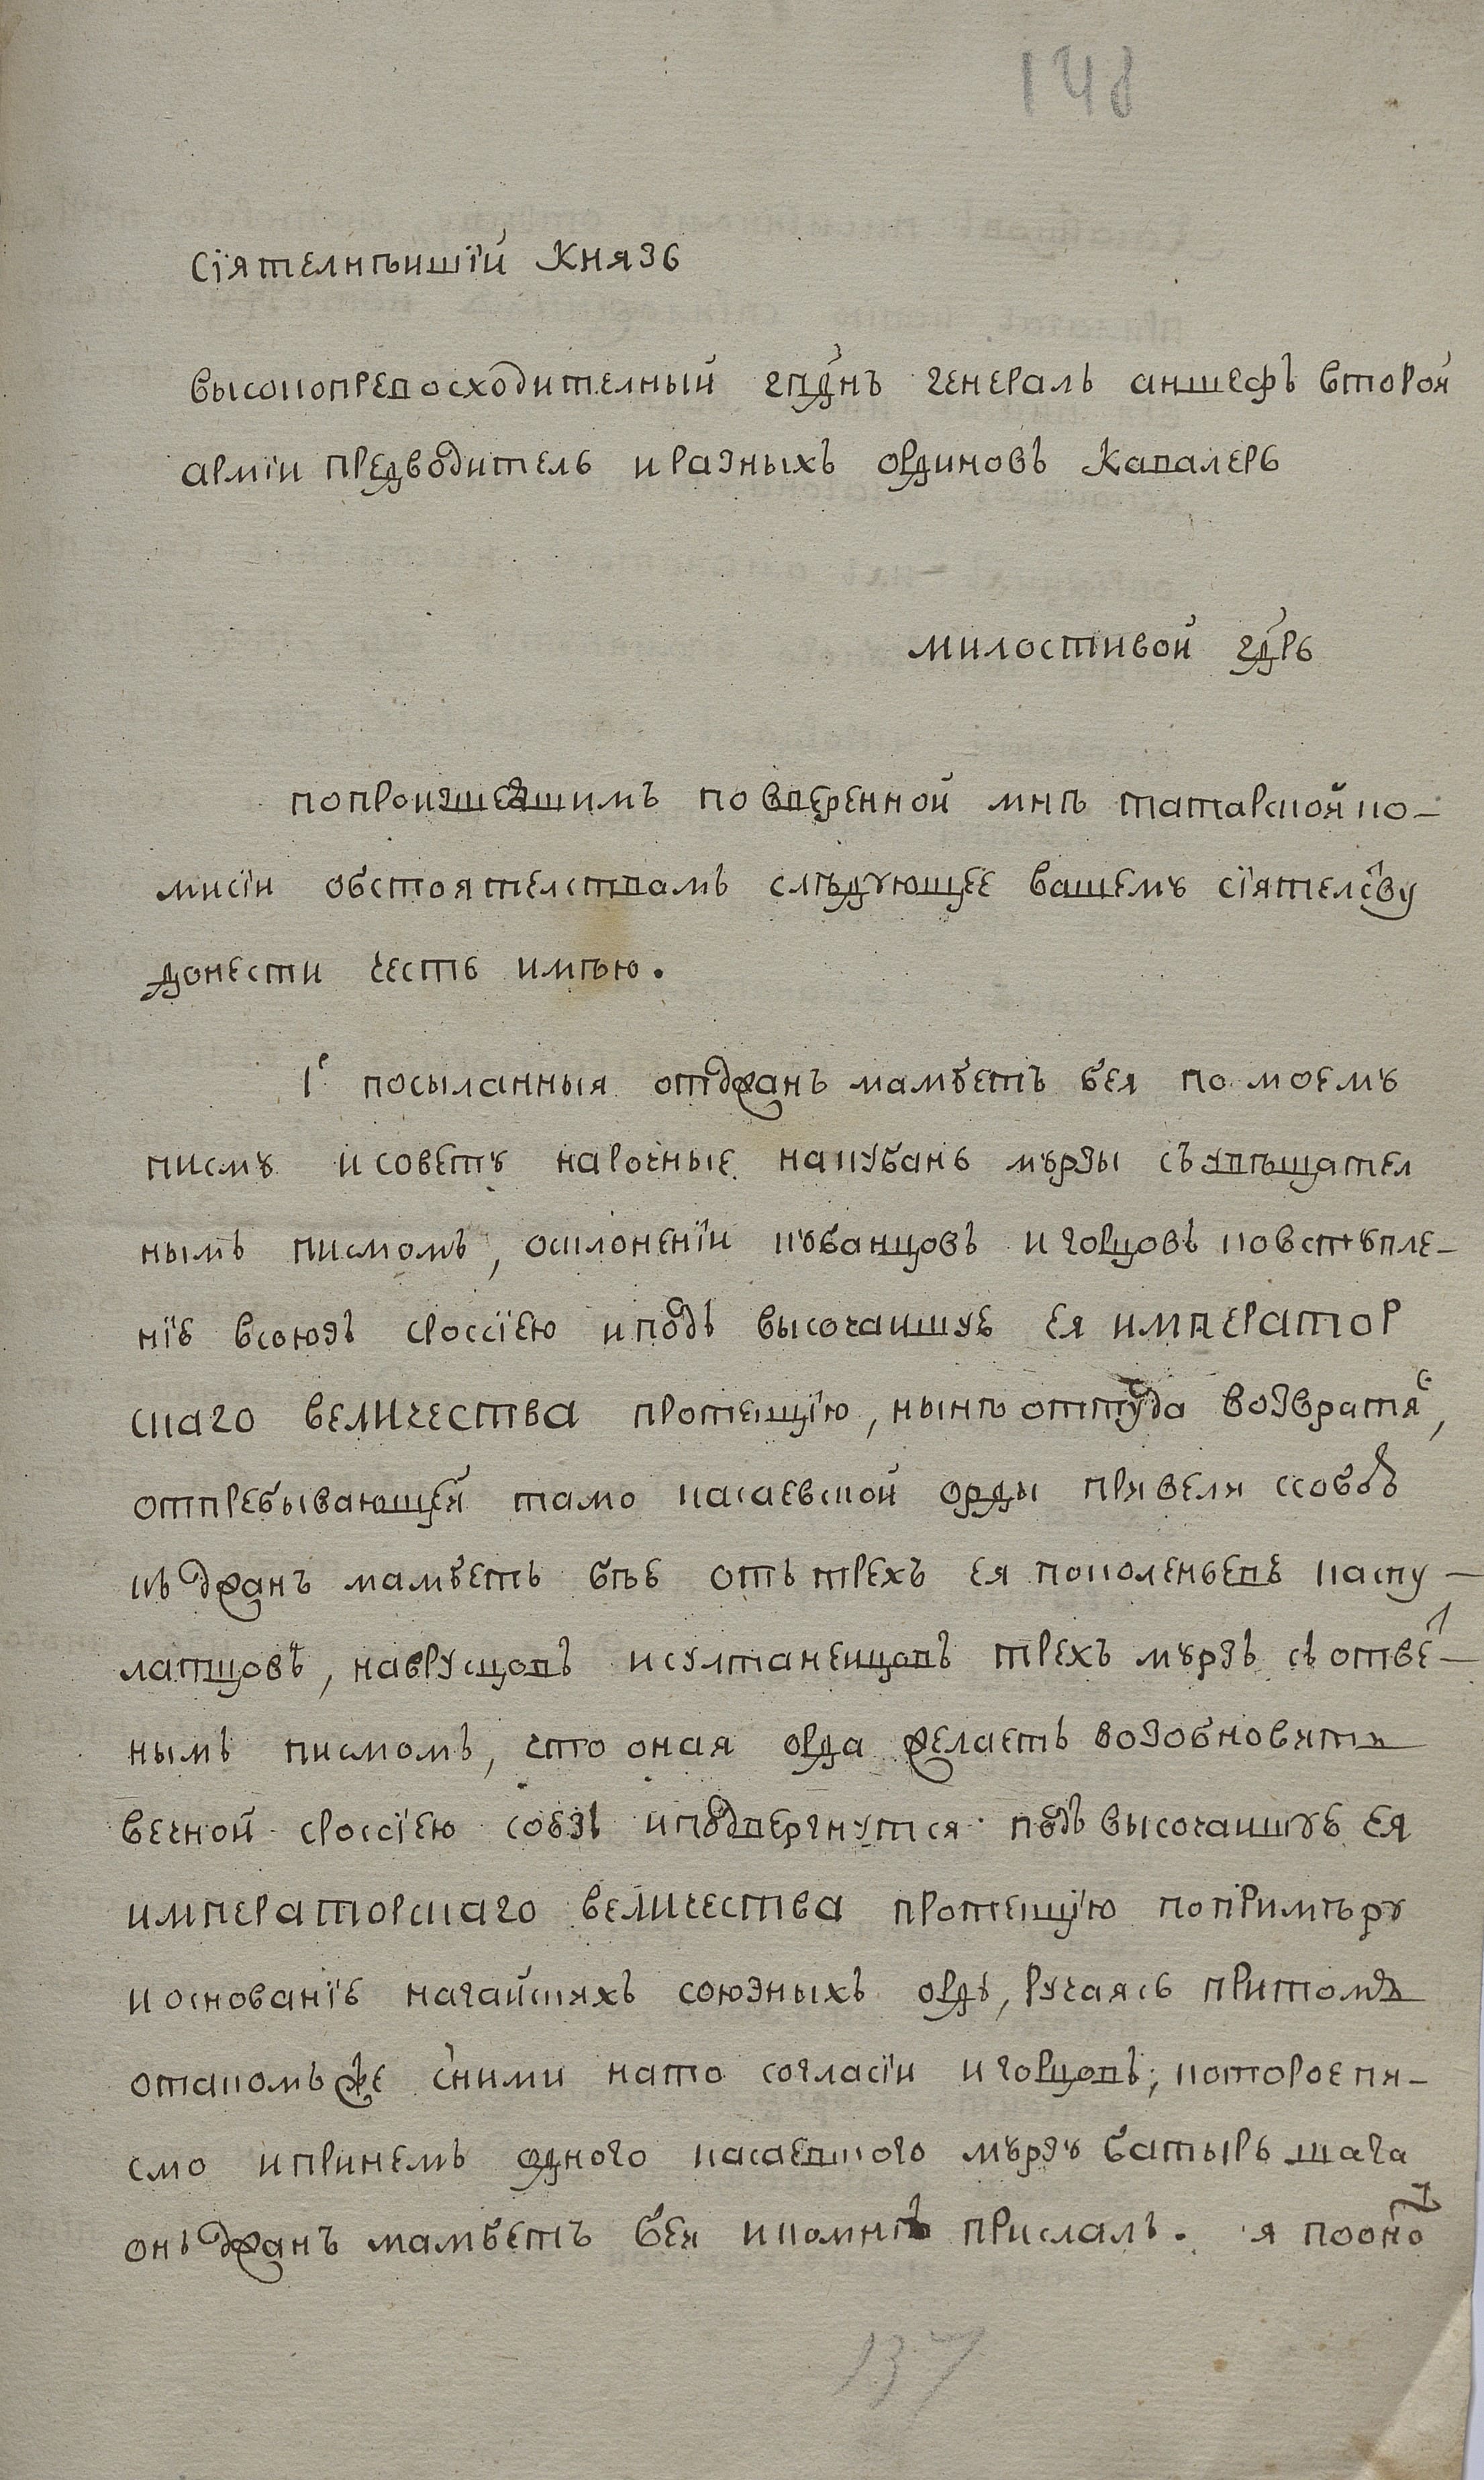 148
Сїятелнѣишїй Князь
высокопревосходителный гпднъ генералъ аншефъ второй
армїи предводитель и разныхъ ординовъ Кавалеръ
милостивой гдрь
по произшедшимъ по вверенной мнѣ татарской ко-
мисїи обстоятелствамъ слѣдующее вашему сїятелству
донести честь имѣю.
1е посыланныя от джанъ мамбетъ бея по моему
писму и совету нарочные на кубань мурзы съ увѣщател
нымъ писмомъ, о склоненїи кубанцовъ и горцовъ ко вступле-
нїю в союзъ с россїею и подъ высочаишую ея император
скаго величества протекцїю, нынѣ оттуда возвратяс,
от пребывающей тамо касаевской орды привели с собою
къ джанъ мамбетъ бею отъ трехъ ея поколеньевъ каспу-
латцовъ, наврусцовъ и султанеицовъ трехъ мурзъ съ ответ-
нымъ писмомъ, что оная орда желаетъ возобновить
вечной с россїею союзъ и подвергнутся подъ высочаишую ея
императорскаго величества протекцїю по примѣру
и основанїю нагайскихъ союзныхъ ордъ, ручаясь притомъ
о такомъ же с ними на то согласїи и горцовъ; которое пи-
смо и при немъ одного касаевского мурзу батырь шага
онъ джанъ мамбетъ бей и ко мнѣ прислалъ. я по оно
137